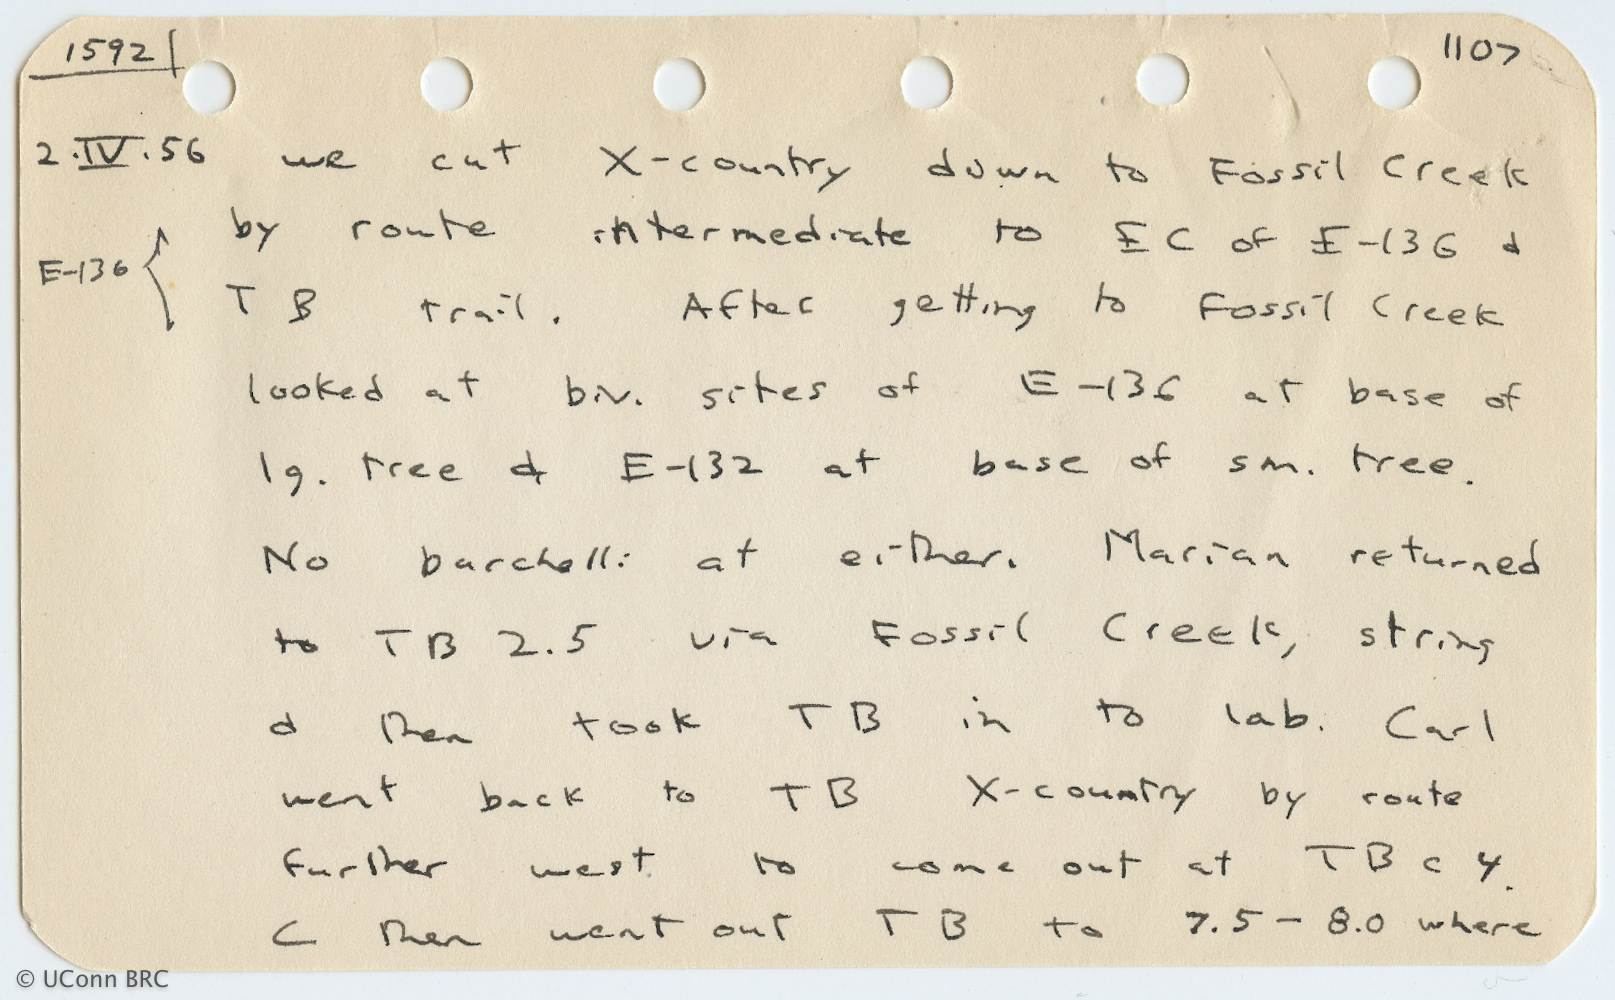 1592 1107
2.IV.56 we cut X-country down to Fossil Creek
by route intermediate to EC of E-136 &
E-136 { TB trail. After getting to Fossil Creek
looked at biv. sites of E-136 at base of
lg. tree & E-132 at base of sm. tree.
No burchelli at either. Marian returned
to TB 2.5 via Fossil Creek, string
& then took TB in to lab. Carl
went back to TB X-country by route
further west to come out at TB c 4.
C then went out TB to 7.5-8.0 where
© UConn BRC